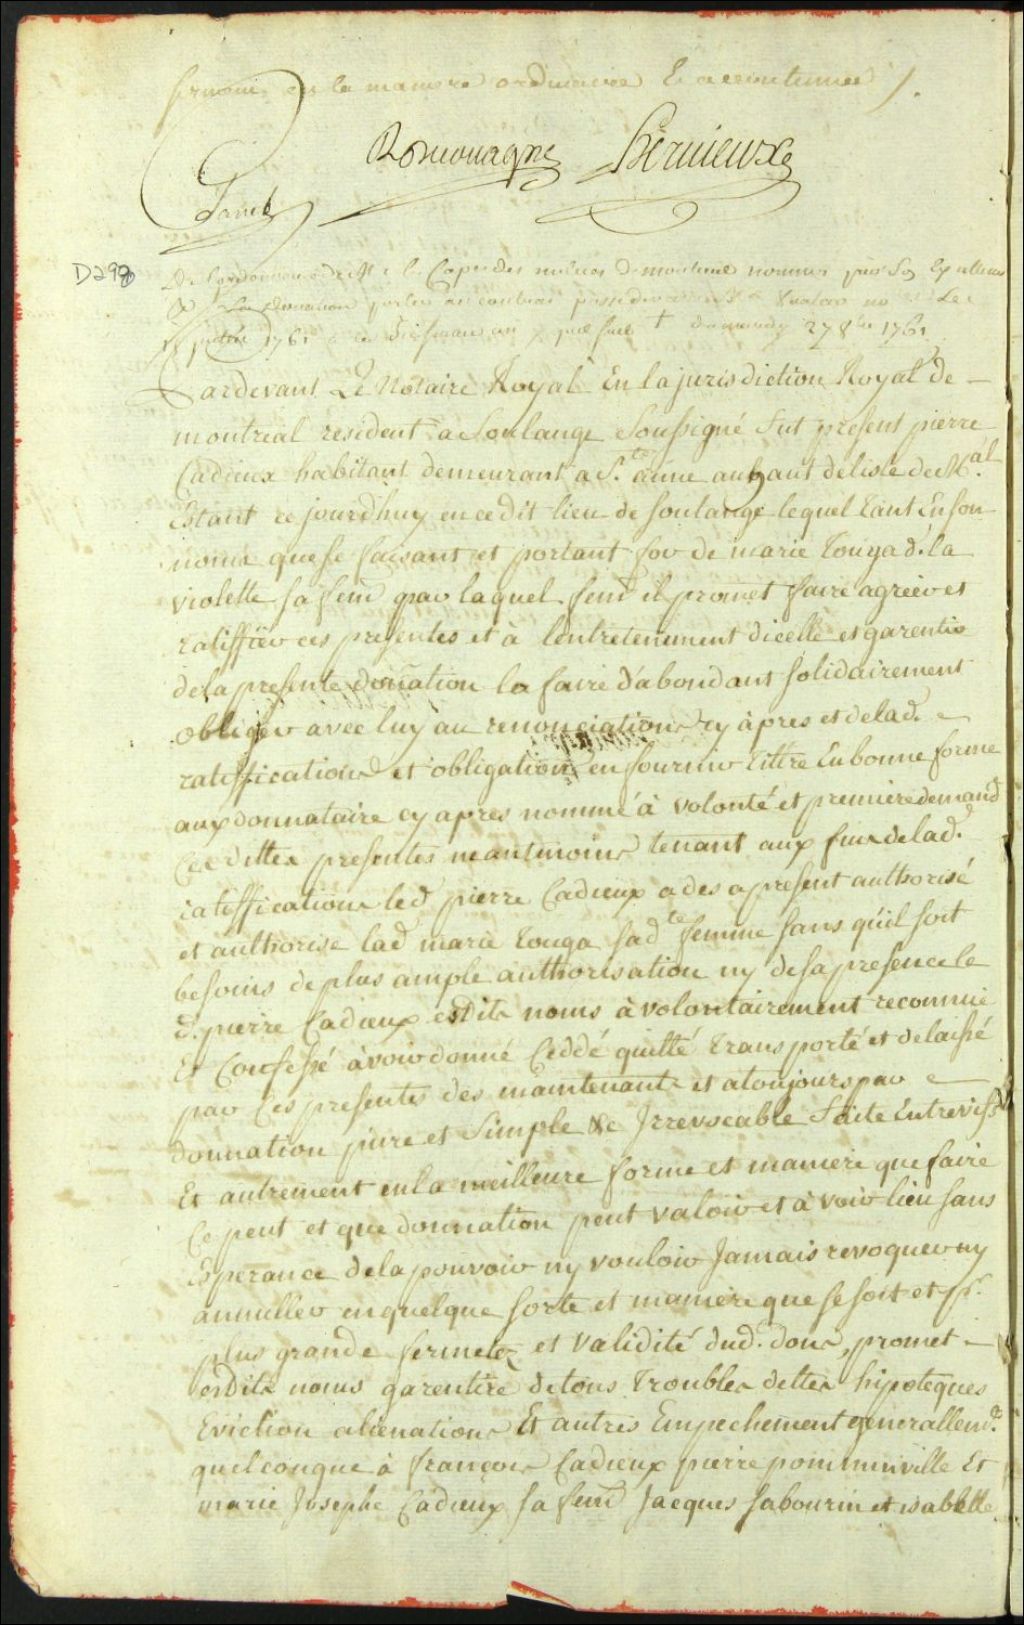 en la maniere ordinaire Et accoutumee /.
Romouagne
D298
De Capes des milices De montreal nommés par Son
La Donnation
1761 27 8bre 1761
Pardevant Le Notaire Royal En la jurisdiction Royal de
montreal resident a Soulange Soussigné Fut present pierre
Cadieux habitant demeurant a Ste anne au haut de lisle de Mal.
Estant ce jourdhuy en ce dit lieu de Soulange lequel tant En son
nome que se faisant et portant for de marie Tougad. la
violette sa feme par laquel feme il promet faire agréer et
ratiffier ces presentes et à lentretenement dicelle et garentie
de la presente donnation la faire d'abondant Solidairement
obliger avec luy au renonciations cy àpres et de lad.
ratiffication et obligation en fournir tittre En bonne forme
aux donnataire cy apres nommé à volonté et premiere demand
Ces dittes presentes neantmoins tenant aux fins de lad.
ratiffication led pierre Cadieux a des apresent authorisé
et authorise lad marie Touga sad te femme sans qu'il soit
besoins de plus ample authorisation ny de sa presence le
d. pierre Cadieux esdits noms à volontairement reconnue
Et Confessé àvoir donné Ceddé quitté transporté et delaissé
par Ces presentes des maintenants et atoujours par
donnation pure et Simple & Irrevocable Faite Entrevifs
Et autrement en la meilleure forme et maniere que faire
Ce peut et que donnation peut valoir et à voir lieu sans
Esperance de la pouvoir ny vouloir Jamais revoquer ny
annuller en quelque sorte et maniere que se soit et pr.
plus grande fermetez et validité dud. don, promet
esdits noms garentire de tous troubles dettes hipoteques
Eviction alienations Et autres Empechement generallemt.
quelconque à françois Cadieux pierre pomminville Et
marie Josephe Cadieux sa feme Jacques sabourin et isabelle